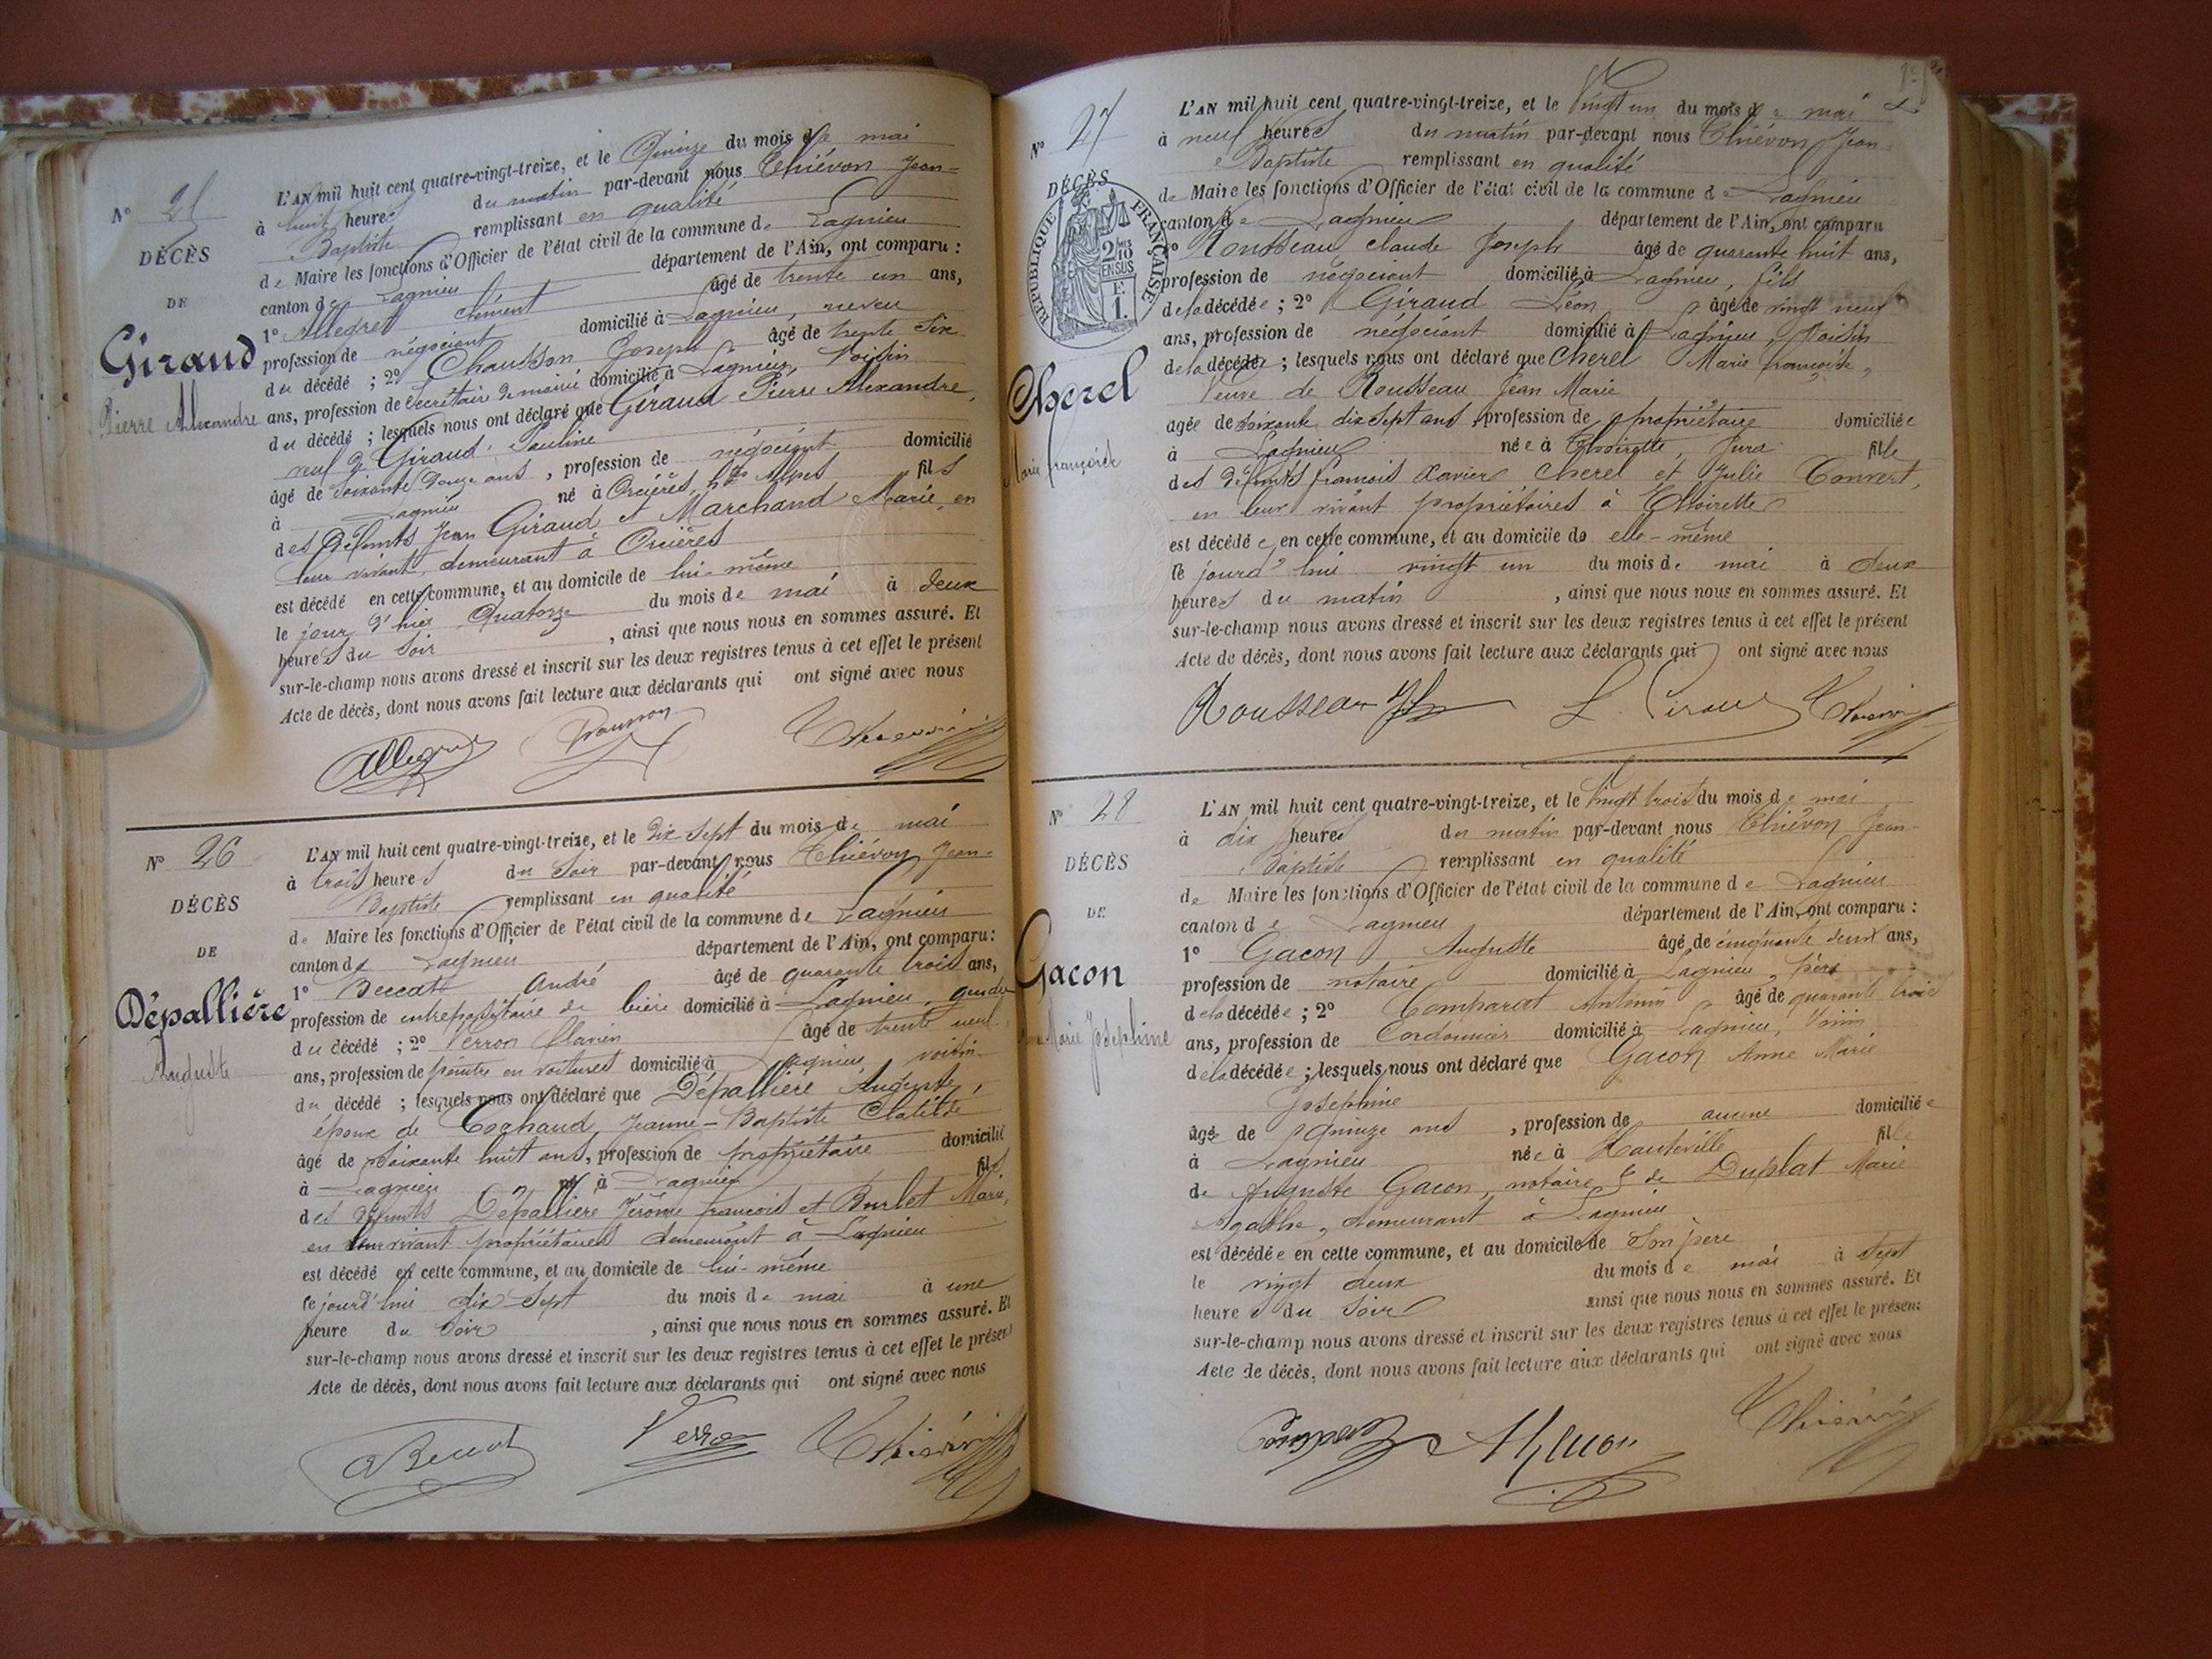 N° 25
DÉCÈS
DE
Giraud
Pierre Alexandre
L'AN mil huit cent quatre-vingt-treize, et le Quinze du mois de mai
à huit heures du matin par-devant nous Thiévon Jean-
Baptiste remplissant en qualité
de Maire les fonctions d'Officier de l'état civil de la commune de Lagnieu
canton de Lagnieu département de l'Ain, ont comparu :
1° Allegret Clément âgé de trente un ans,
profession de négociant domicilié à Lagnieu, neveu
du décédé ; 2° Chausson Joseph âgé de trente six
ans, profession de Secrétaire de mairie domicilié à Lagnieu, Voisin
du décédé ; lesquels nous ont déclaré que Giraud Pierre Alexandre,
veuf de Giraud Pauline
âgé de soixante douze ans, profession de négociant domicilié
à Lagnieu né à Orcières, htes Alpes fils
des défunts Jean Giraud et Marchand Marie, en
leur vivant, demeurant à Orcières
est décédé en cette commune, et au domicile de lui-même
le jour d'hier Quatorze du mois de mai à deux
heures du soir, ainsi que nous nous en sommes assuré. Et
sur-le-champ nous avons dressé et inscrit sur les deux registres tenus à cet effet le présent
Acte de décès, dont nous avons fait lecture aux déclarants qui ont signé avec nous
N° 26
DÉCÈS
DE
Dépallière
Auguste
L'AN mil huit cent quatre-vingt-treize, et le Dix-Sept du mois de mai
à trois heures du Soir par-devant nous Thiévon Jean-
Baptiste remplissant en qualité
de Maire les fonctions d'Officier de l'état civil de la commune de Lagnieu
canton de Lagnieu département de l'Ain, ont comparu:
1° Beccat André âgé de quarante trois ans,
profession de entrepositaire de bière domicilié à Lagnieu, gendre
du décédé ; 2° Verron Flavien âgé de trente neuf
ans, profession de peintre en voitures domicilié à Lagnieu, voisin
du décédé ; lesquels nous ont déclaré que Dépallière Auguste,
époux de Cochaud Jeanne-Baptiste Clotilde
âgé de soixante huit ans, profession de propriétaire domicilié
à Lagnieu né à Lagnieu fils
des défunts Dépallière Jérôme François et Burlet Marie,
en leur vivant propriétaires demeurant à Lagnieu
est décédé en cette commune, et au domicile de lui-même
le jourd'hui dix-sept du mois de mai à une
heure du Soir, ainsi que nous nous en sommes assuré. Et
sur-le-champ nous avons dressé et inscrit sur les deux registres tenus à cet effet le présent
Acte de décès, dont nous avons fait lecture aux déclarants qui ont signé avec nous
Verron
N° 27
DÉCÈS
RÉPUBLIQUE FRANÇAISE
2/10 EN SUS
F.
1.
Cherel
Marie Françoise
L'AN mil huit cent quatre-vingt-treize, et le Vingt un du mois de mai
à neuf heures du matin par-devant nous Thiévon Jean-
Baptiste remplissant en qualité
de Maire les fonctions d'Officier de l'état civil de la commune de Lagnieu
canton de Lagnieu département de l'Ain, ont comparu
1° Rousseau Claude Joseph âgé de quarante huit ans,
profession de négociant domicilié à Lagnieu, fils
de la décédée ; 2° Giraud Léon âgé de vingt neuf
ans, profession de négociant domicilié à Lagnieu, Voisin
de la décédée ; lesquels nous ont déclaré que Cherel Marie Françoise,
Veuve de Rousseau Jean Marie
agée de soixante dix sept ans, profession de propriétaire domiciliée
à Lagnieu née à Thoirette, Jura fille
des défunts François Xavier Cherel et Julie Convert,
en leur vivant propriétaires à Thoirette
est décédée en cette commune, et au domicile de elle-même
le jourd'hui vingt un du mois de mai à deux
heures du matin, ainsi que nous nous en sommes assuré. Et
sur-le-champ nous avons dressé et inscrit sur les deux registres tenus à cet effet le présent
Acte de décès, dont nous avons fait lecture aux déclarants qui ont signé avec nous
Rousseau L. Giraud
N° 28
DÉCÈS
DE
Gacon
Anne Marie Joséphine
L'AN mil huit cent quatre-vingt-treize, et le Vingt trois du mois de mai
à dix heures du matin par-devant nous Thiévon Jean-
Baptiste remplissant en qualité
de Maire les fonctions d'Officier de l'état civil de la commune de Lagnieu
canton de Lagnieu département de l'Ain, ont comparu :
1° Gacon Auguste âgé de cinquante deux ans,
profession de notaire domicilié à Lagnieu, père
de la décédée ; 2° Comparat Antonin âgé de quarante trois
ans, profession de Cordonnier domicilié à Lagnieu, Voisin
de la décédée ; lesquels nous ont déclaré que Gacon Anne Marie
Joséphine
âgée de Quinze ans, profession de aucune domiciliée
à Lagnieu née à Hauteville fille
de Auguste Gacon, notaire & de Duplat Marie
Agathe, demeurant à Lagnieu
est décédée en cette commune, et au domicile de Son père
le vingt deux du mois de mai à Sept
heures du Soir ainsi que nous nous en sommes assuré. Et
sur-le-champ nous avons dressé et inscrit sur les deux registres tenus à cet effet le présent
Acte de décès, dont nous avons fait lecture aux déclarants qui ont signé avec nous